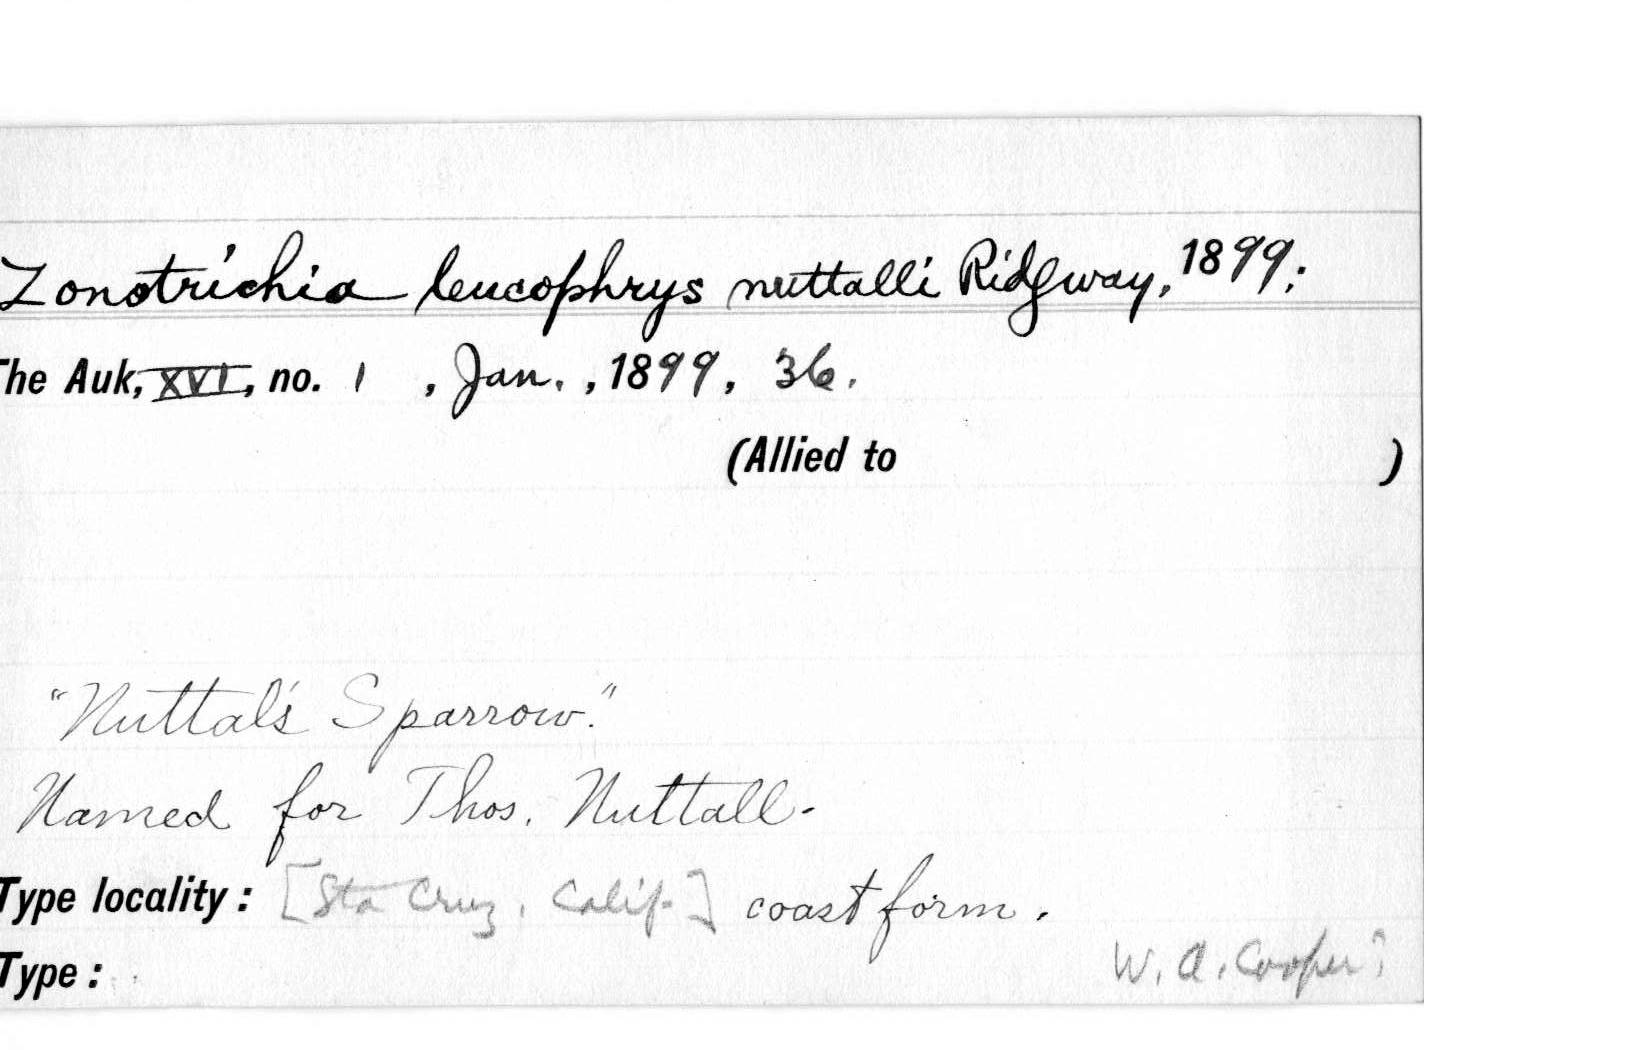 Zonotrichia leucophrys nuttalli Ridgway, 1899;
The Auk, XVI, no. 1 , Jan. , 1899, 36.
(Allied to )
"Nuttal's Sparrow."
Named for Thos. Nuttall-
Type locality: [Sta Cruz, Calif.] coast form.
Type:
W. A. Cooper?